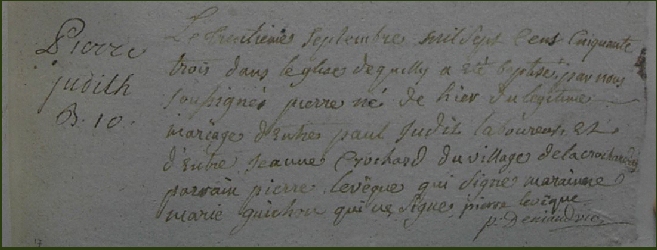 Pierre
judith
B. 10.
Le trentieme Septembre mil Sept Cens Cinquante
trois dans leglise de guilly a eté baptisé par nous
soussignés pierre né de hier du legitime
mariage d'entre paul Judit laboureur Et
d'entre Jeanne Crochard du village
parrain pierre levêque qui signe maraine
marie guichon qui ne signe, pierre levêque